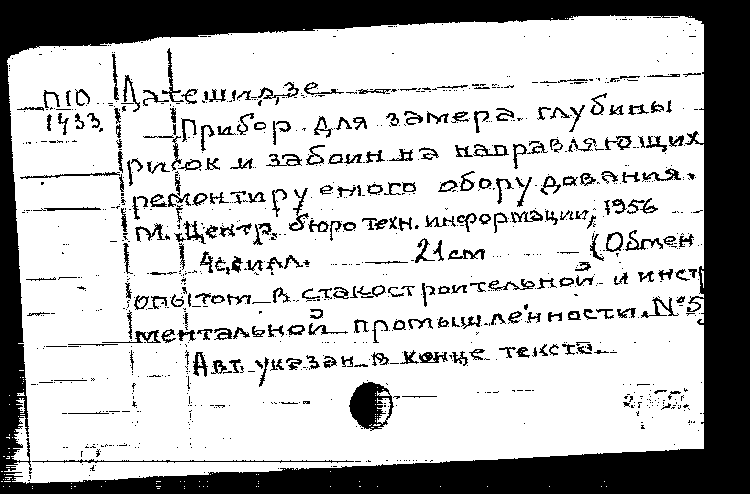 П10 Датешидзе.
1433. Прибор для замера глубины
рисок и забоин на направляющих
ремонтируемого оборудования.
М. Центр. бюро техн. информации, 1956
4с.силл. 21см (Обмен
опытом в стакостроительной и инстр
ментальной промышленности. №5
Авт. указан в конце текста.